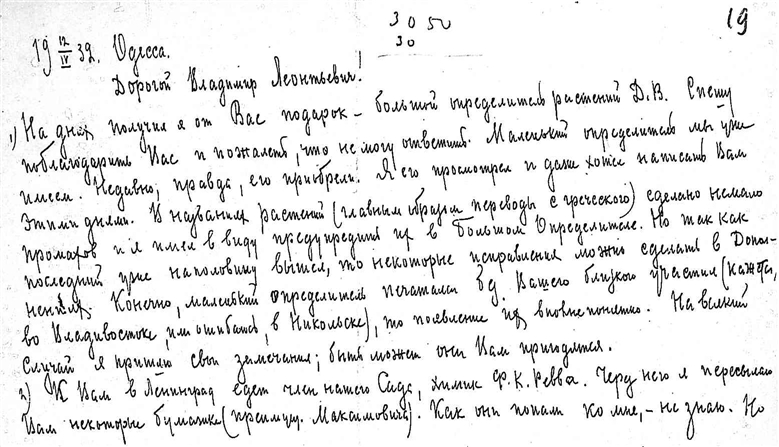 3050
30
19
19 12/IV 32. Одесса.
Дорогой Владимир Леонтьевич!
1) На днях получил я от Вас подарок – большой определитель растений Д.В. Спешу
поблагодарить Вас и пожалеть, что не могу ответить. Маленький определитель мы уже
имеем. Недавно, правда, его приобрели. Я его просмотрел и даже хотел написать Вам
этими днями. В названиях растений (главным образом переводы с греческого) сделано немало
промахов и я имел в виду предупредить их в Большом Определителе. Но так как
последний уже наполовину вышел, то некоторые исправления можно сделать в Допол-
нениях. Конечно, маленький определитель печатался без Вашего близкого участия (кажется,
во Владивостоке, или ошибаюсь, в Никольске), то появление их вполне понятно. На всякий
случай я пришлю свои замечания; быть может они Вам пригодятся.
2) К Вам в Ленинград едет член нашего Сада, химик Ф.К. Ревва. Через него я пересылаю
Вам некоторые бумажки (преимущ. Максимовича). Как они попали ко мне, – не знаю. Но